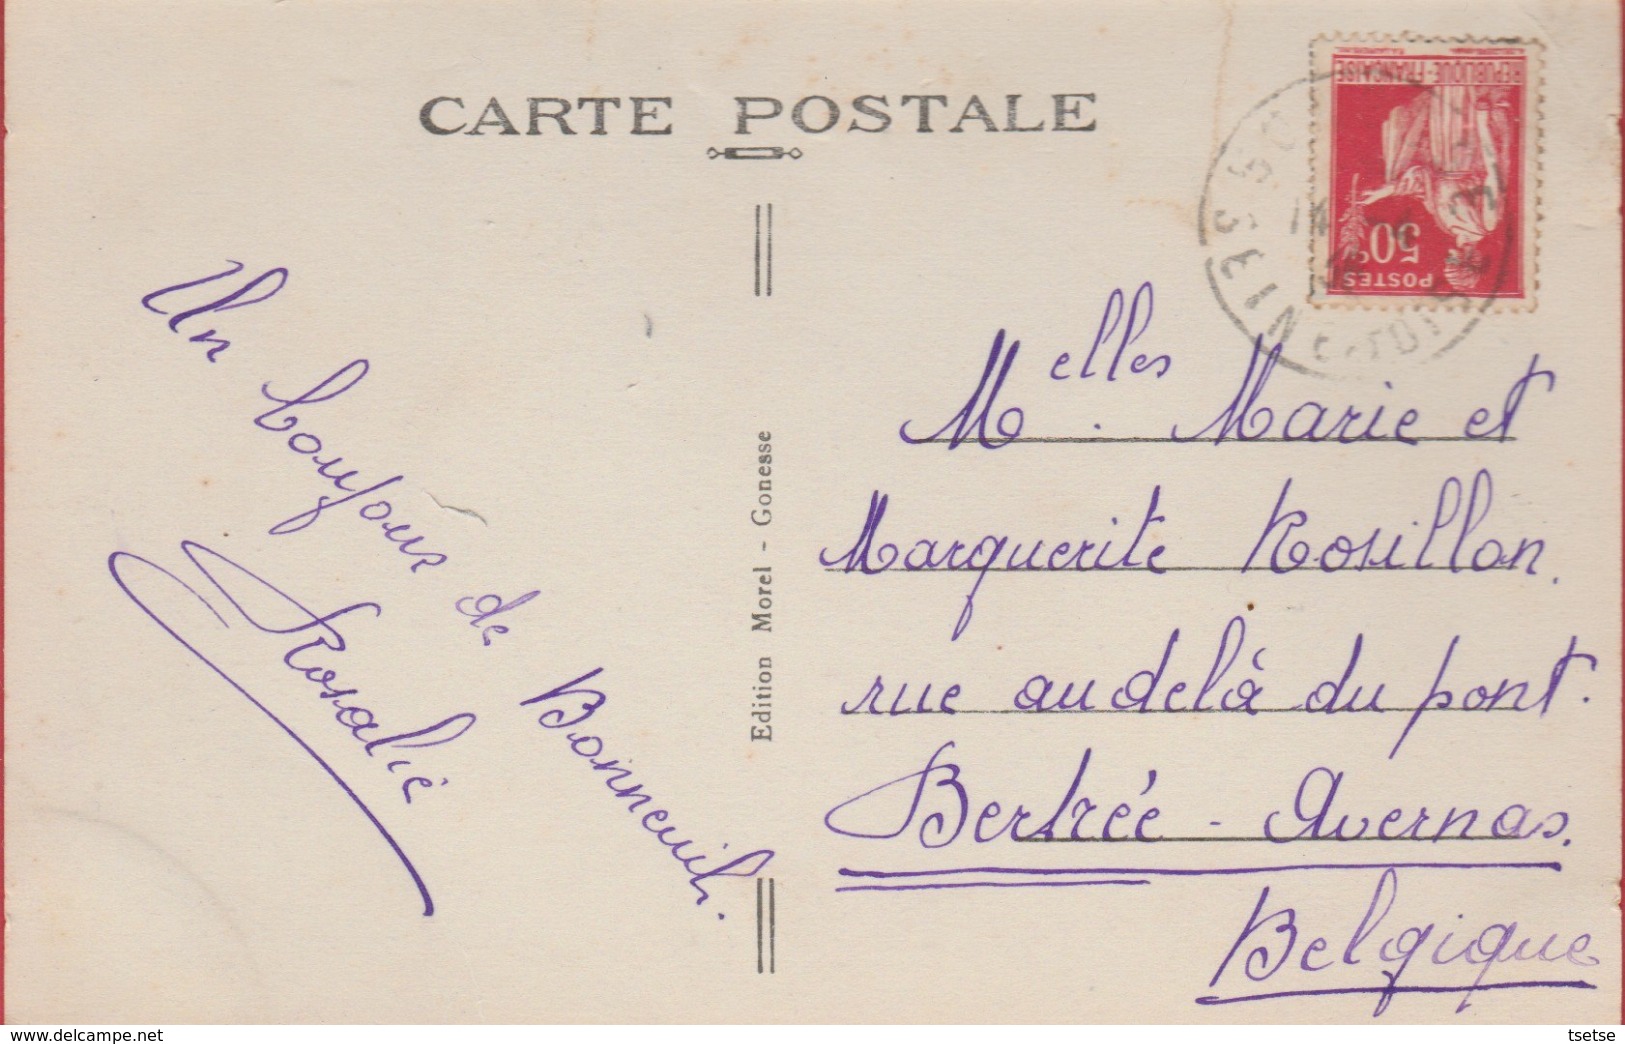 CARTE POSTALE
RÉPUBLIQUE-FRANÇAISE
50c
POSTES
SEINE
Un bonjour de Bonneuil.
Rosalie
Edition Morel - Gonesse
Melles. Marie et
Marguerite Rosillon.
rue au delà du pont.
Bertrée - Avernas.
Belgique
© www.delcampe.net
tsetse